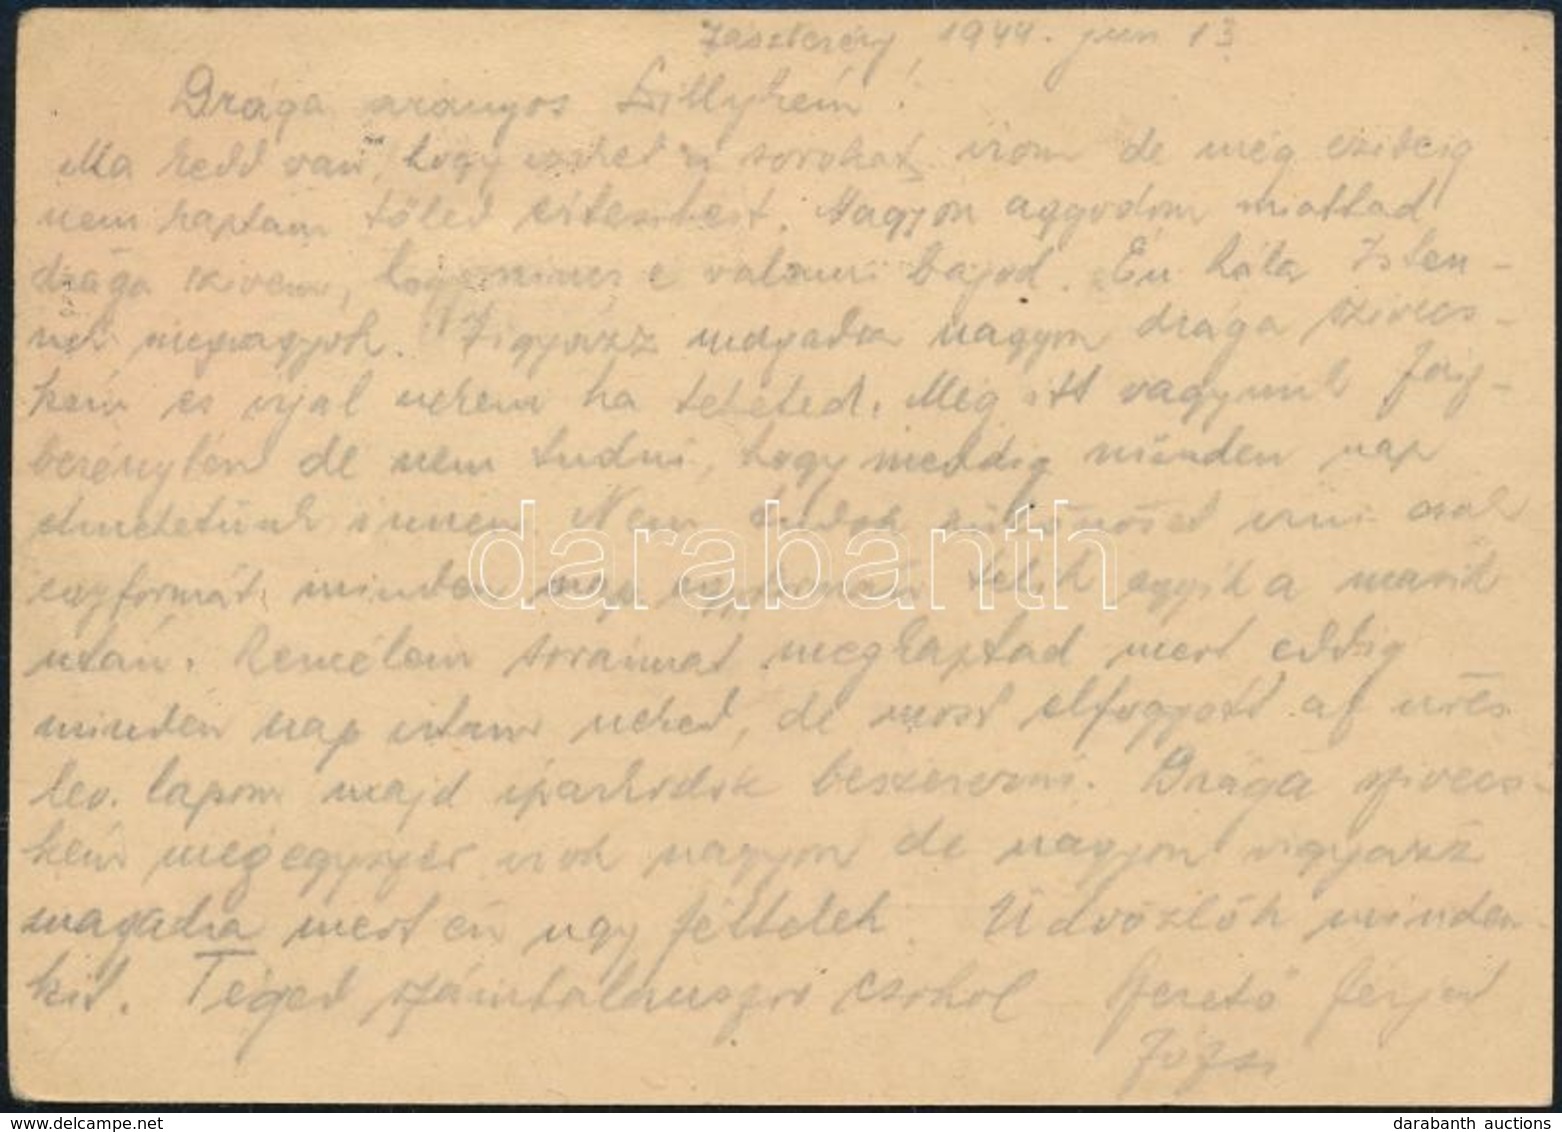 Jászberény, 1944. jun 13
Drága aranyos Lillykém!
Ma kedd van, hogy ezeket a sorokat irom de még ezideig
nem kaptam tőled értesitést. Nagyon aggodom miattad
drága szivem, hogy nincs e valami bajod. Én hála Isten-
nek megvagyok. Vigyázz magadra nagyon drága szivecs-
kém es irjal nekem ha teheted. Még itt vagyunk Jász-
berényben de nem tudni, hogy meddig minden nap
elmehetünk innen. Nem tudok különöset irni csak
egyformát minden nap egyformán telik egyik a másik
után. Remélem soraimat megkaptad mert eddig
minden nap irtam neked, de most elfogyott az
lev. lapom majd iparkodok beszerezni. Drága szivecs-
kém mégegyszer irok nagyon de nagyon vigyázz
magadra mert én ugy féltelek. Üdvözlök minden-
kit. Téged számtalanszor csokol szerető férjed
Józsi
darabanth
darabanth auctions